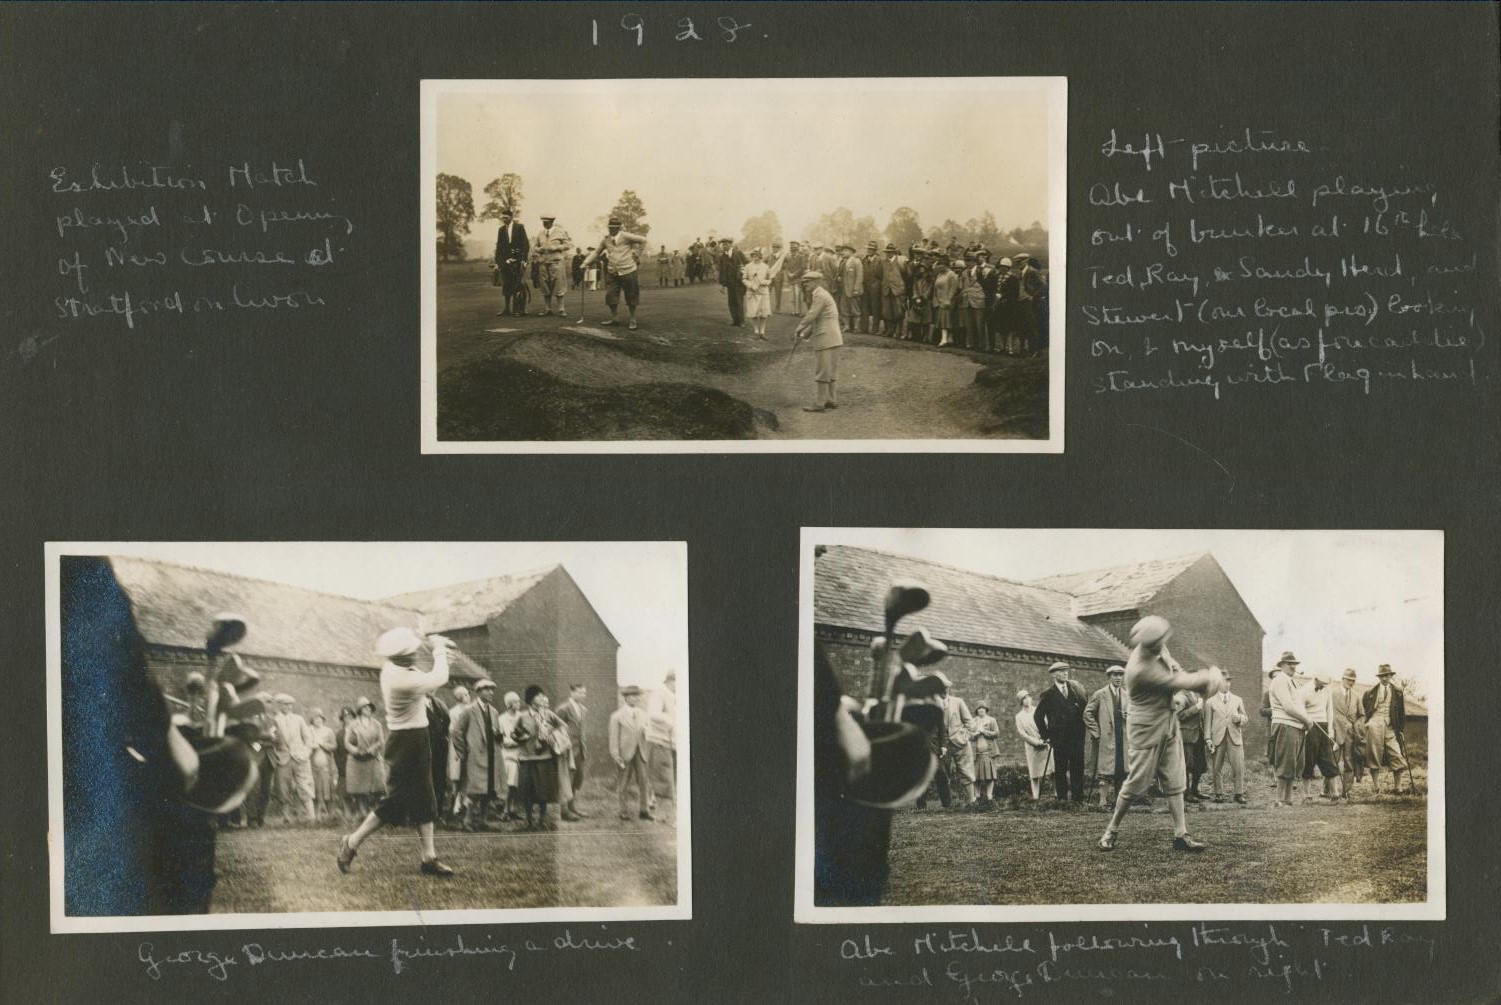 1928.
Exhibition Match
played at Opening
of New Course at
Stratford on Avon
Left picture
Abe Mitchell playing
out of bunker at 16th hole
Ted Ray, & Sandy Herd, and
Stewart (our local pro) looking
on, & myself (as forecaddie)
standing with Flag in hand.
George Duncan finishing a drive.
Abe Mitchell "following through" Ted Ray
and George Duncan on right